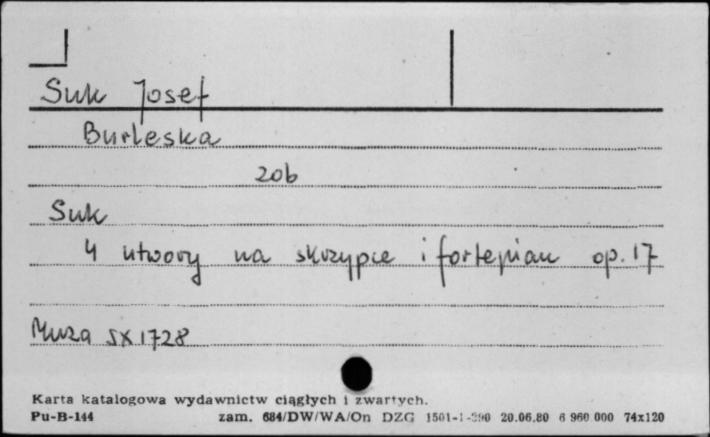 Suk Josef
Burleska
zob
Suk
4 utwory na skrzypce i fortepian op. 17
Muza SX 1728
Karta katalogowa wydawnictw ciągłych i zwartych.
Pu-B-144 zam. 684/DW/WA/On DZG 20.06.80 6 960 000 74x120